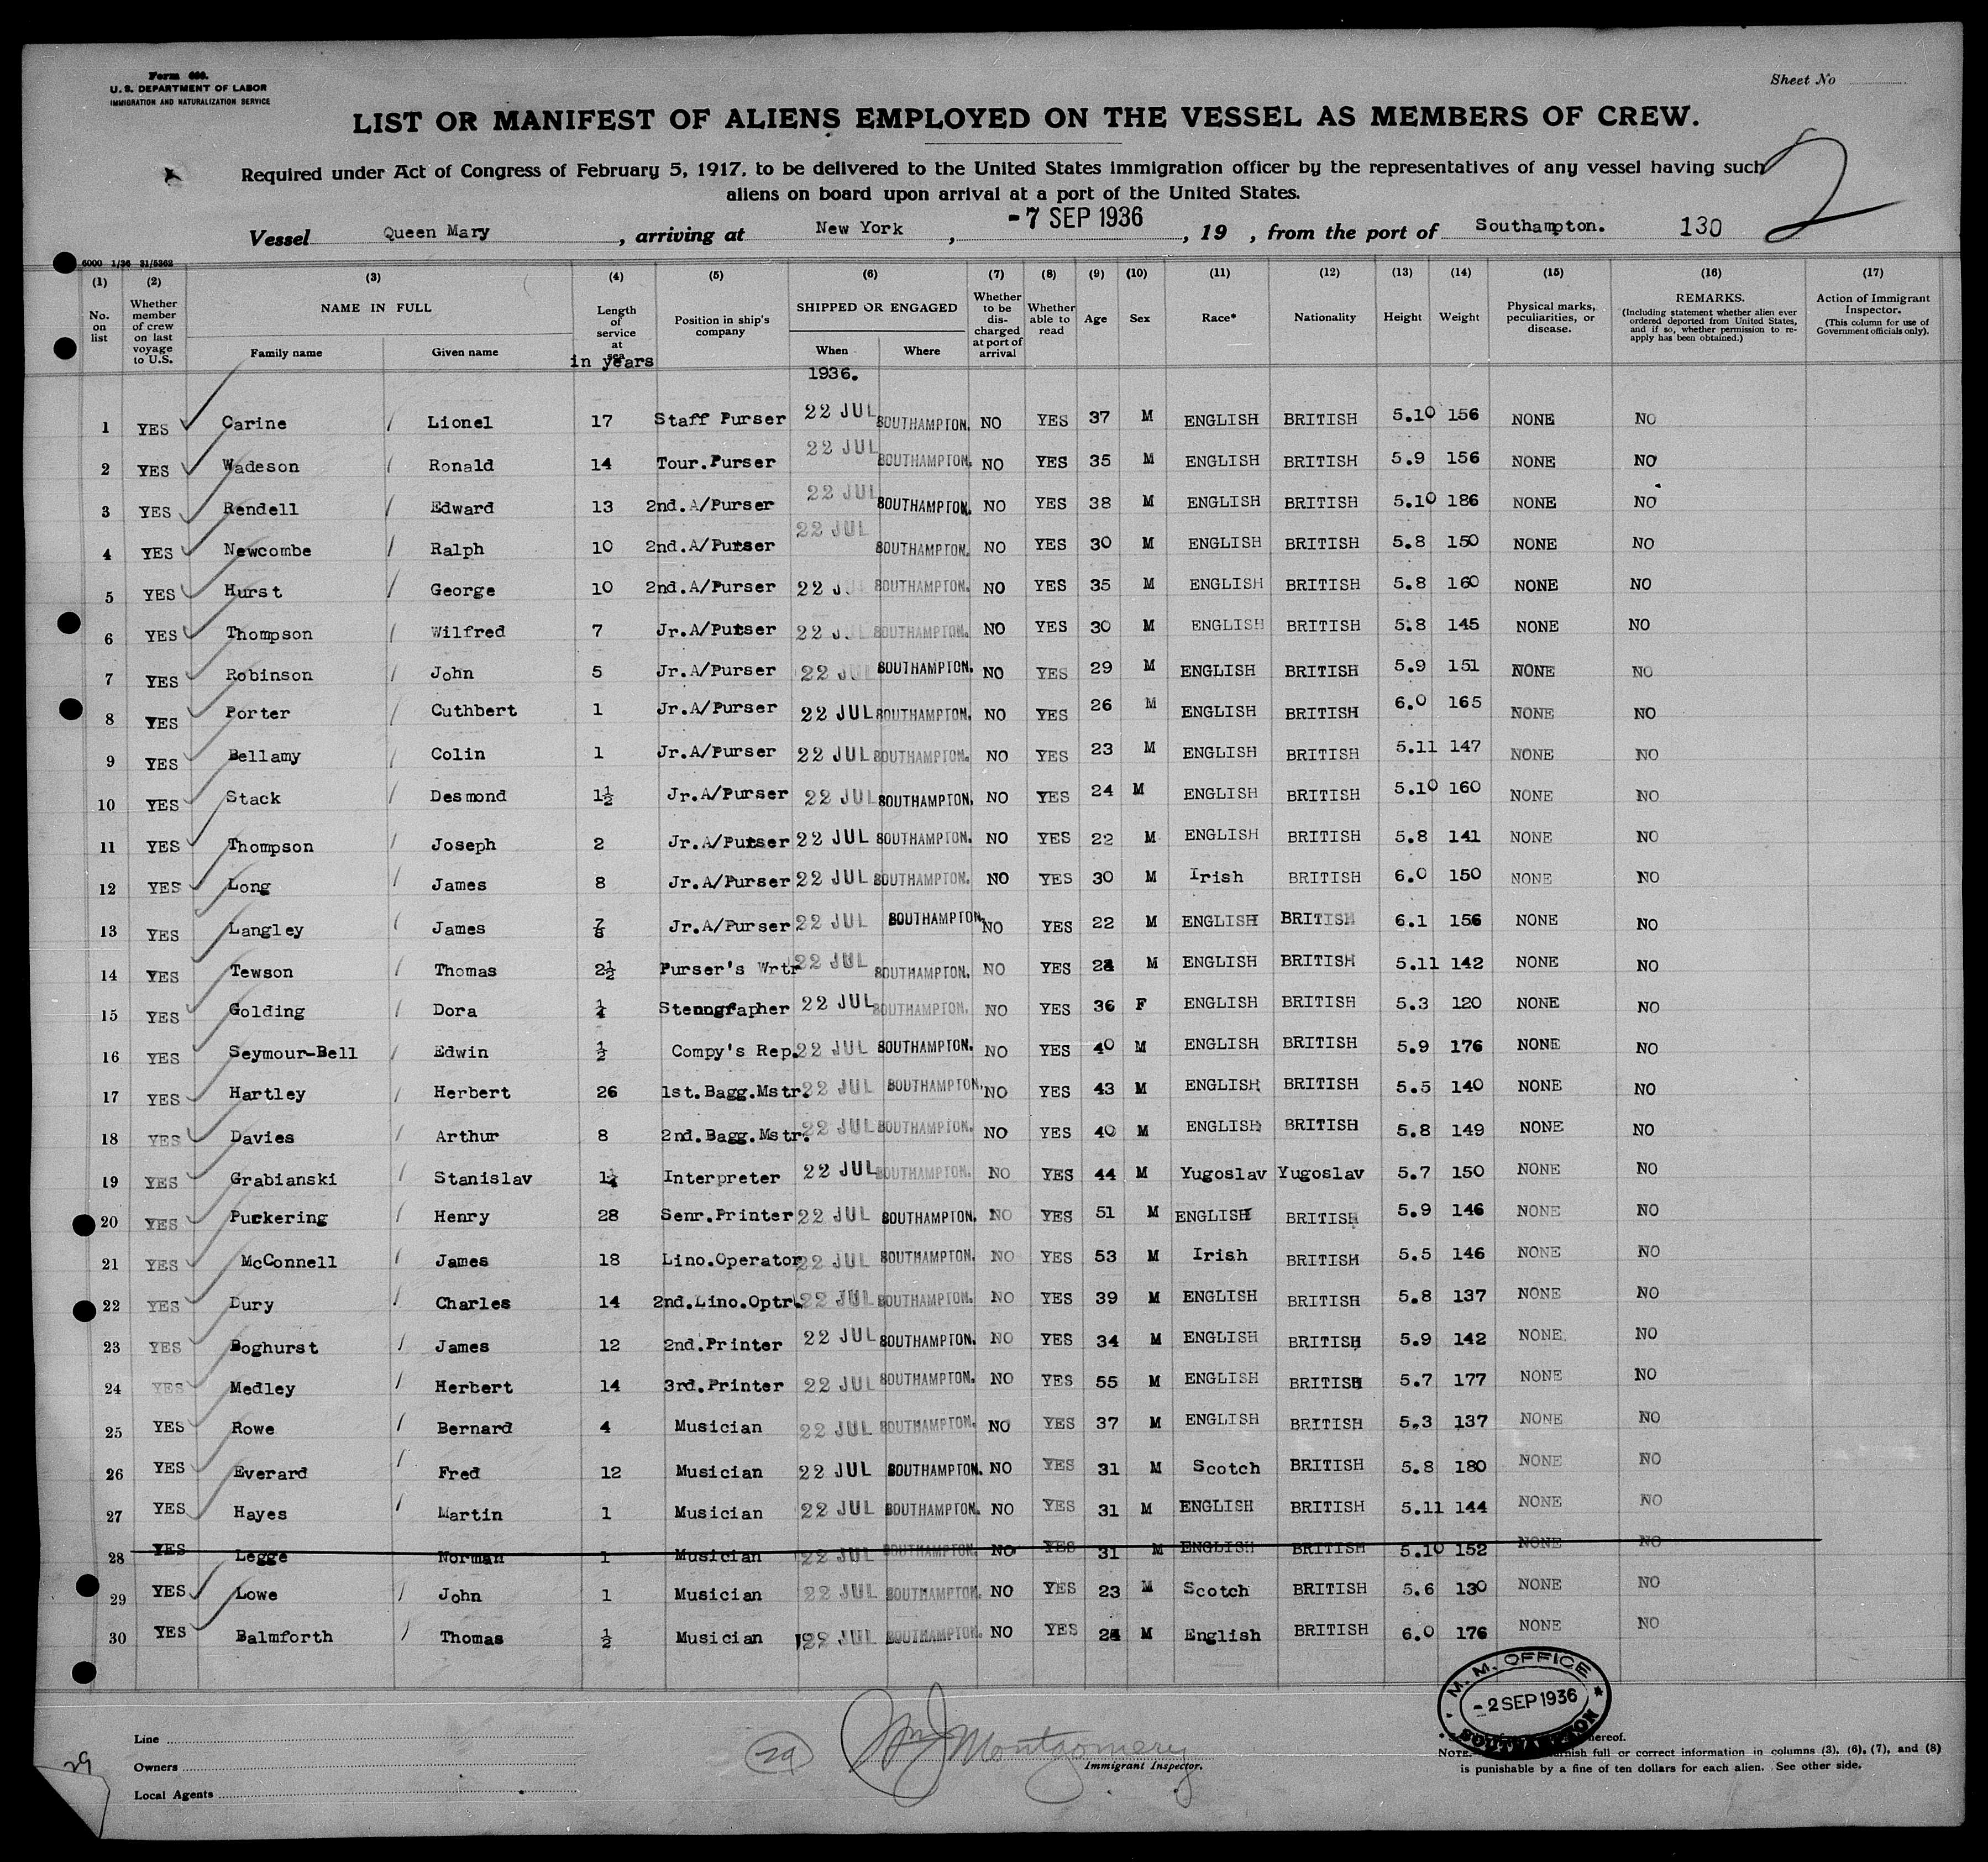 Form 680.
U. S. DEPARTMENT OF LABOR
IMMIGRATION AND NATURALIZATION SERVICE
Sheet No
LIST OR MANIFEST OF ALIENS EMPLOYED ON THE VESSEL AS MEMBERS OF CREW.
2
Required under Act of Congress of February 5, 1917, to be delivered to the United States immigration officer by the representatives of any vessel having such
aliens on board upon arrival at a port of the United States.
Vessel Queen Mary, arriving at New York, -7 SEP 1936, 19 , from the port of Southampton. 130
6000 1/36 31/5262
(1) (2) (3) (4) (5) (6) (7) (8) (9) (10) (11) (12) (13) (14) (15) (16) (17)
No. on list
Whether member of crew on last voyage to U.S.
NAME IN FULL
Family name Given name
Length of service at sea
in years
Position in ship's company
SHIPPED OR ENGAGED
When Where
1936.
Whether to be discharged at port of arrival
Whether able to read
Age
Sex
Race*
Nationality
Height
Weight
Physical marks, peculiarities, or disease.
REMARKS.
(Including statement whether alien ever ordered deported from United States, and if so, whether permission to re-apply has been obtained.)
Action of Immigrant Inspector.
(This column for use of Government officials only).
1 YES Carine Lionel 17 Staff Purser 22 JUL SOUTHAMPTON. NO YES 37 M ENGLISH BRITISH 5.10 156 NONE NO
2 YES Wadeson Ronald 14 Tour.Purser 22 JUL SOUTHAMPTON. NO YES 35 M ENGLISH BRITISH 5.9 156 NONE NO
3 YES Rendell Edward 13 2nd.A/Purser 22 JUL SOUTHAMPTON. NO YES 38 M ENGLISH BRITISH 5.10 186 NONE NO
4 YES Newcombe Ralph 10 2nd.A/Purser 22 JUL SOUTHAMPTON. NO YES 30 M ENGLISH BRITISH 5.8 150 NONE NO
5 YES Hurst George 10 2nd.A/Purser 22 J SOUTHAMPTON. NO YES 35 M ENGLISH BRITISH 5.8 160 NONE NO
6 YES Thompson Wilfred 7 Jr.A/Purser 22 JUL SOUTHAMPTON. NO YES 30 M ENGLISH BRITISH 5.8 145 NONE NO
7 YES Robinson John 5 Jr.A/Purser 22 JUL SOUTHAMPTON. NO YES 29 M ENGLISH BRITISH 5.9 151 NONE NO
8 YES Porter Cuthbert 1 Jr.A/Purser 22 JUL SOUTHAMPTON. NO YES 26 M ENGLISH BRITISH 6.0 165 NONE NO
9 YES Bellamy Colin 1 Jr.A/Purser 22 JUL SOUTHAMPTON. NO YES 23 M ENGLISH BRITISH 5.11 147 NONE NO
10 YES Stack Desmond 1½ Jr.A/Purser 22 JUL SOUTHAMPTON. NO YES 24 M ENGLISH BRITISH 5.10 160 NONE NO
11 YES Thompson Joseph 2 Jr.A/Purser 22 JUL SOUTHAMPTON. NO YES 22 M ENGLISH BRITISH 5.8 141 NONE NO
12 YES Long James 8 Jr.A/Purser 22 JUL SOUTHAMPTON. NO YES 30 M Irish BRITISH 6.0 150 NONE NO
13 YES Langley James ⅞ Jr.A/Purser 22 JUL SOUTHAMPTON. NO YES 22 M ENGLISH BRITISH 6.1 156 NONE NO
14 YES Tewson Thomas 2½ Purser's Wrtr 22 JUL SOUTHAMPTON. NO YES M ENGLISH BRITISH 5.11 142 NONE NO
15 YES Golding Dora ¼ Stenografapher 22 JUL SOUTHAMPTON. NO YES 36 F ENGLISH BRITISH 5.3 120 NONE NO
16 YES Seymour-Bell Edwin ½ Compy's Rep. 22 JUL SOUTHAMPTON. NO YES 40 M ENGLISH BRITISH 5.9 176 NONE NO
17 YES Hartley Herbert 26 1st.Bagg.Mstr. 22 JUL SOUTHAMPTON. NO YES 43 M ENGLISH BRITISH 5.5 140 NONE NO
18 YES Davies Arthur 8 2nd.Bagg.Mstr. 22 JUL SOUTHAMPTON. NO YES 40 M ENGLISH BRITISH 5.8 149 NONE NO
19 YES Grabianski Stanislav 1¼ Interpreter 22 JUL SOUTHAMPTON. NO YES 44 M Yugoslav Yugoslav 5.7 150 NONE NO
20 YES Puckering Henry 28 Senr.Printer 22 JUL SOUTHAMPTON. NO YES 51 M ENGLISH BRITISH 5.9 146 NONE NO
21 YES McConnell James 18 Lino.Operator 22 JUL SOUTHAMPTON. NO YES 53 M Irish BRITISH 5.5 146 NONE NO
22 YES Dury Charles 14 2nd.Lino.Optr. 22 JUL SOUTHAMPTON. NO YES 39 M ENGLISH BRITISH 5.8 137 NONE NO
23 YES Boghurst James 12 2nd.Printer 22 JUL SOUTHAMPTON. NO YES 34 M ENGLISH BRITISH 5.9 142 NONE. NO
24 YES Medley Herbert 14 3rd.Printer 22 JUL SOUTHAMPTON. NO YES 55 M ENGLISH BRITISH 5.7 177 NONE NO
25 YES Rowe Bernard 4 Musician 22 JUL SOUTHAMPTON. NO YES 37 M ENGLISH BRITISH 5.3 137 NONE NO
26 YES Everard Fred 12 Musician 22 JUL SOUTHAMPTON. NO YES 31 M Scotch BRITISH 5.8 180 NONE NO
27 YES Hayes Martin 1 Musician 22 JUL SOUTHAMPTON. NO YES 31 M ENGLISH BRITISH 5.11 144 NONE NO
28 YES Legge Norman 1 Musician 22 JUL SOUTHAMPTON. NO YES 31 M ENGLISH BRITISH 5.10 152 NONE NO
29 YES Lowe John 1 Musician 22 JUL SOUTHAMPTON. NO YES 23 M Scotch BRITISH 5.6 130 NONE NO
30 YES Balmforth Thomas ½ Musician 22 JUL SOUTHAMPTON. NO YES M English BRITISH 6.0 176 NONE NO
M. M. OFFICE
-2 SEP 1936
SOUTHAMPTON
Line
Owners
Local Agents
29
29
Wm J Montgomery
Immigrant Inspector.
hereof.
NOTE. full or correct information in columns (3), (6), (7), and (8)
is punishable by a fine of ten dollars for each alien. See other side.